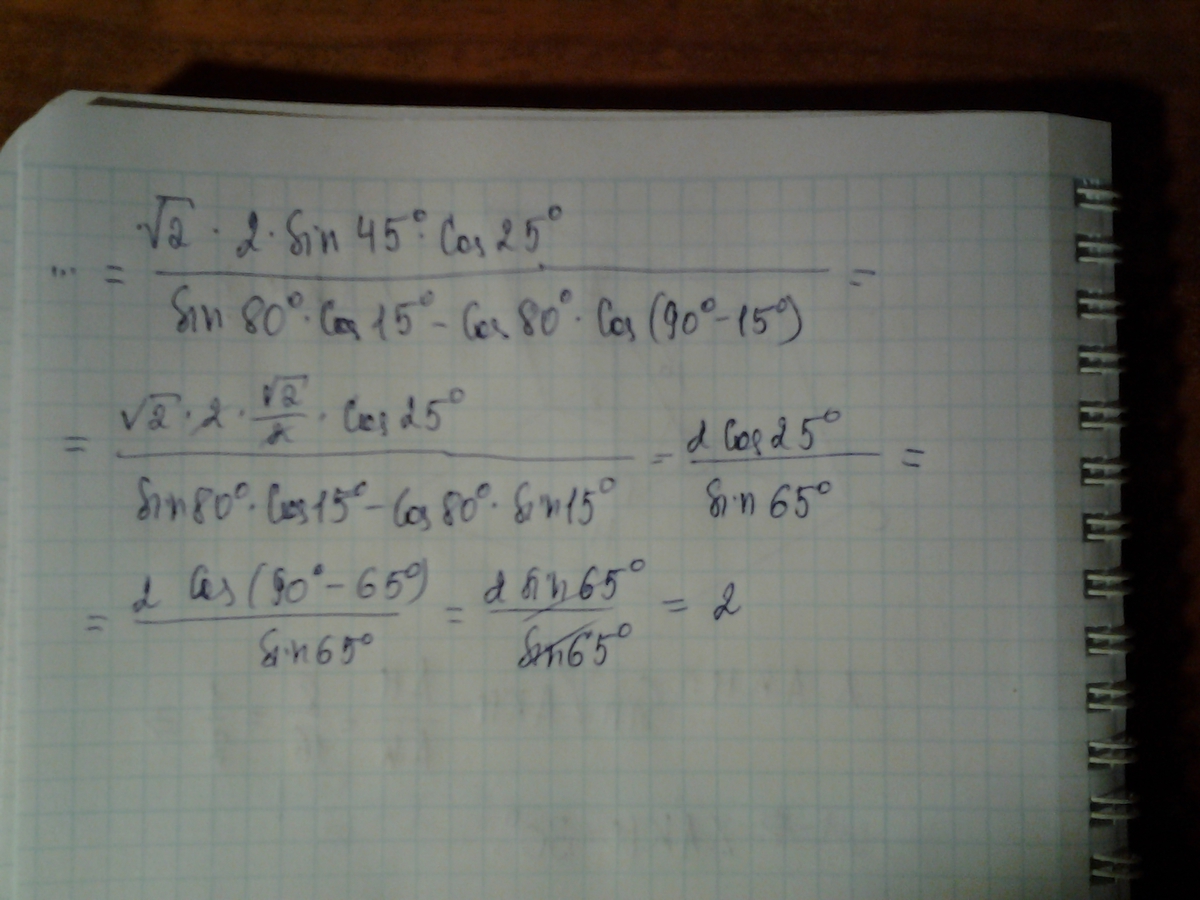 ... = √2 · 2 · Sin 45° · Cos 25° / Sin 80° · Cos 15° - Cos 80° · Cos (90° - 15°) =
= √2 · 2 · √2/2 · Cos 25° / Sin 80° · Cos 15° - Cos 80° · Sin 15° = 2 Cos 25° / Sin 65° =
= 2 Cos (90° - 65°) / Sin 65° = 2 Sin 65° / Sin 65° = 2